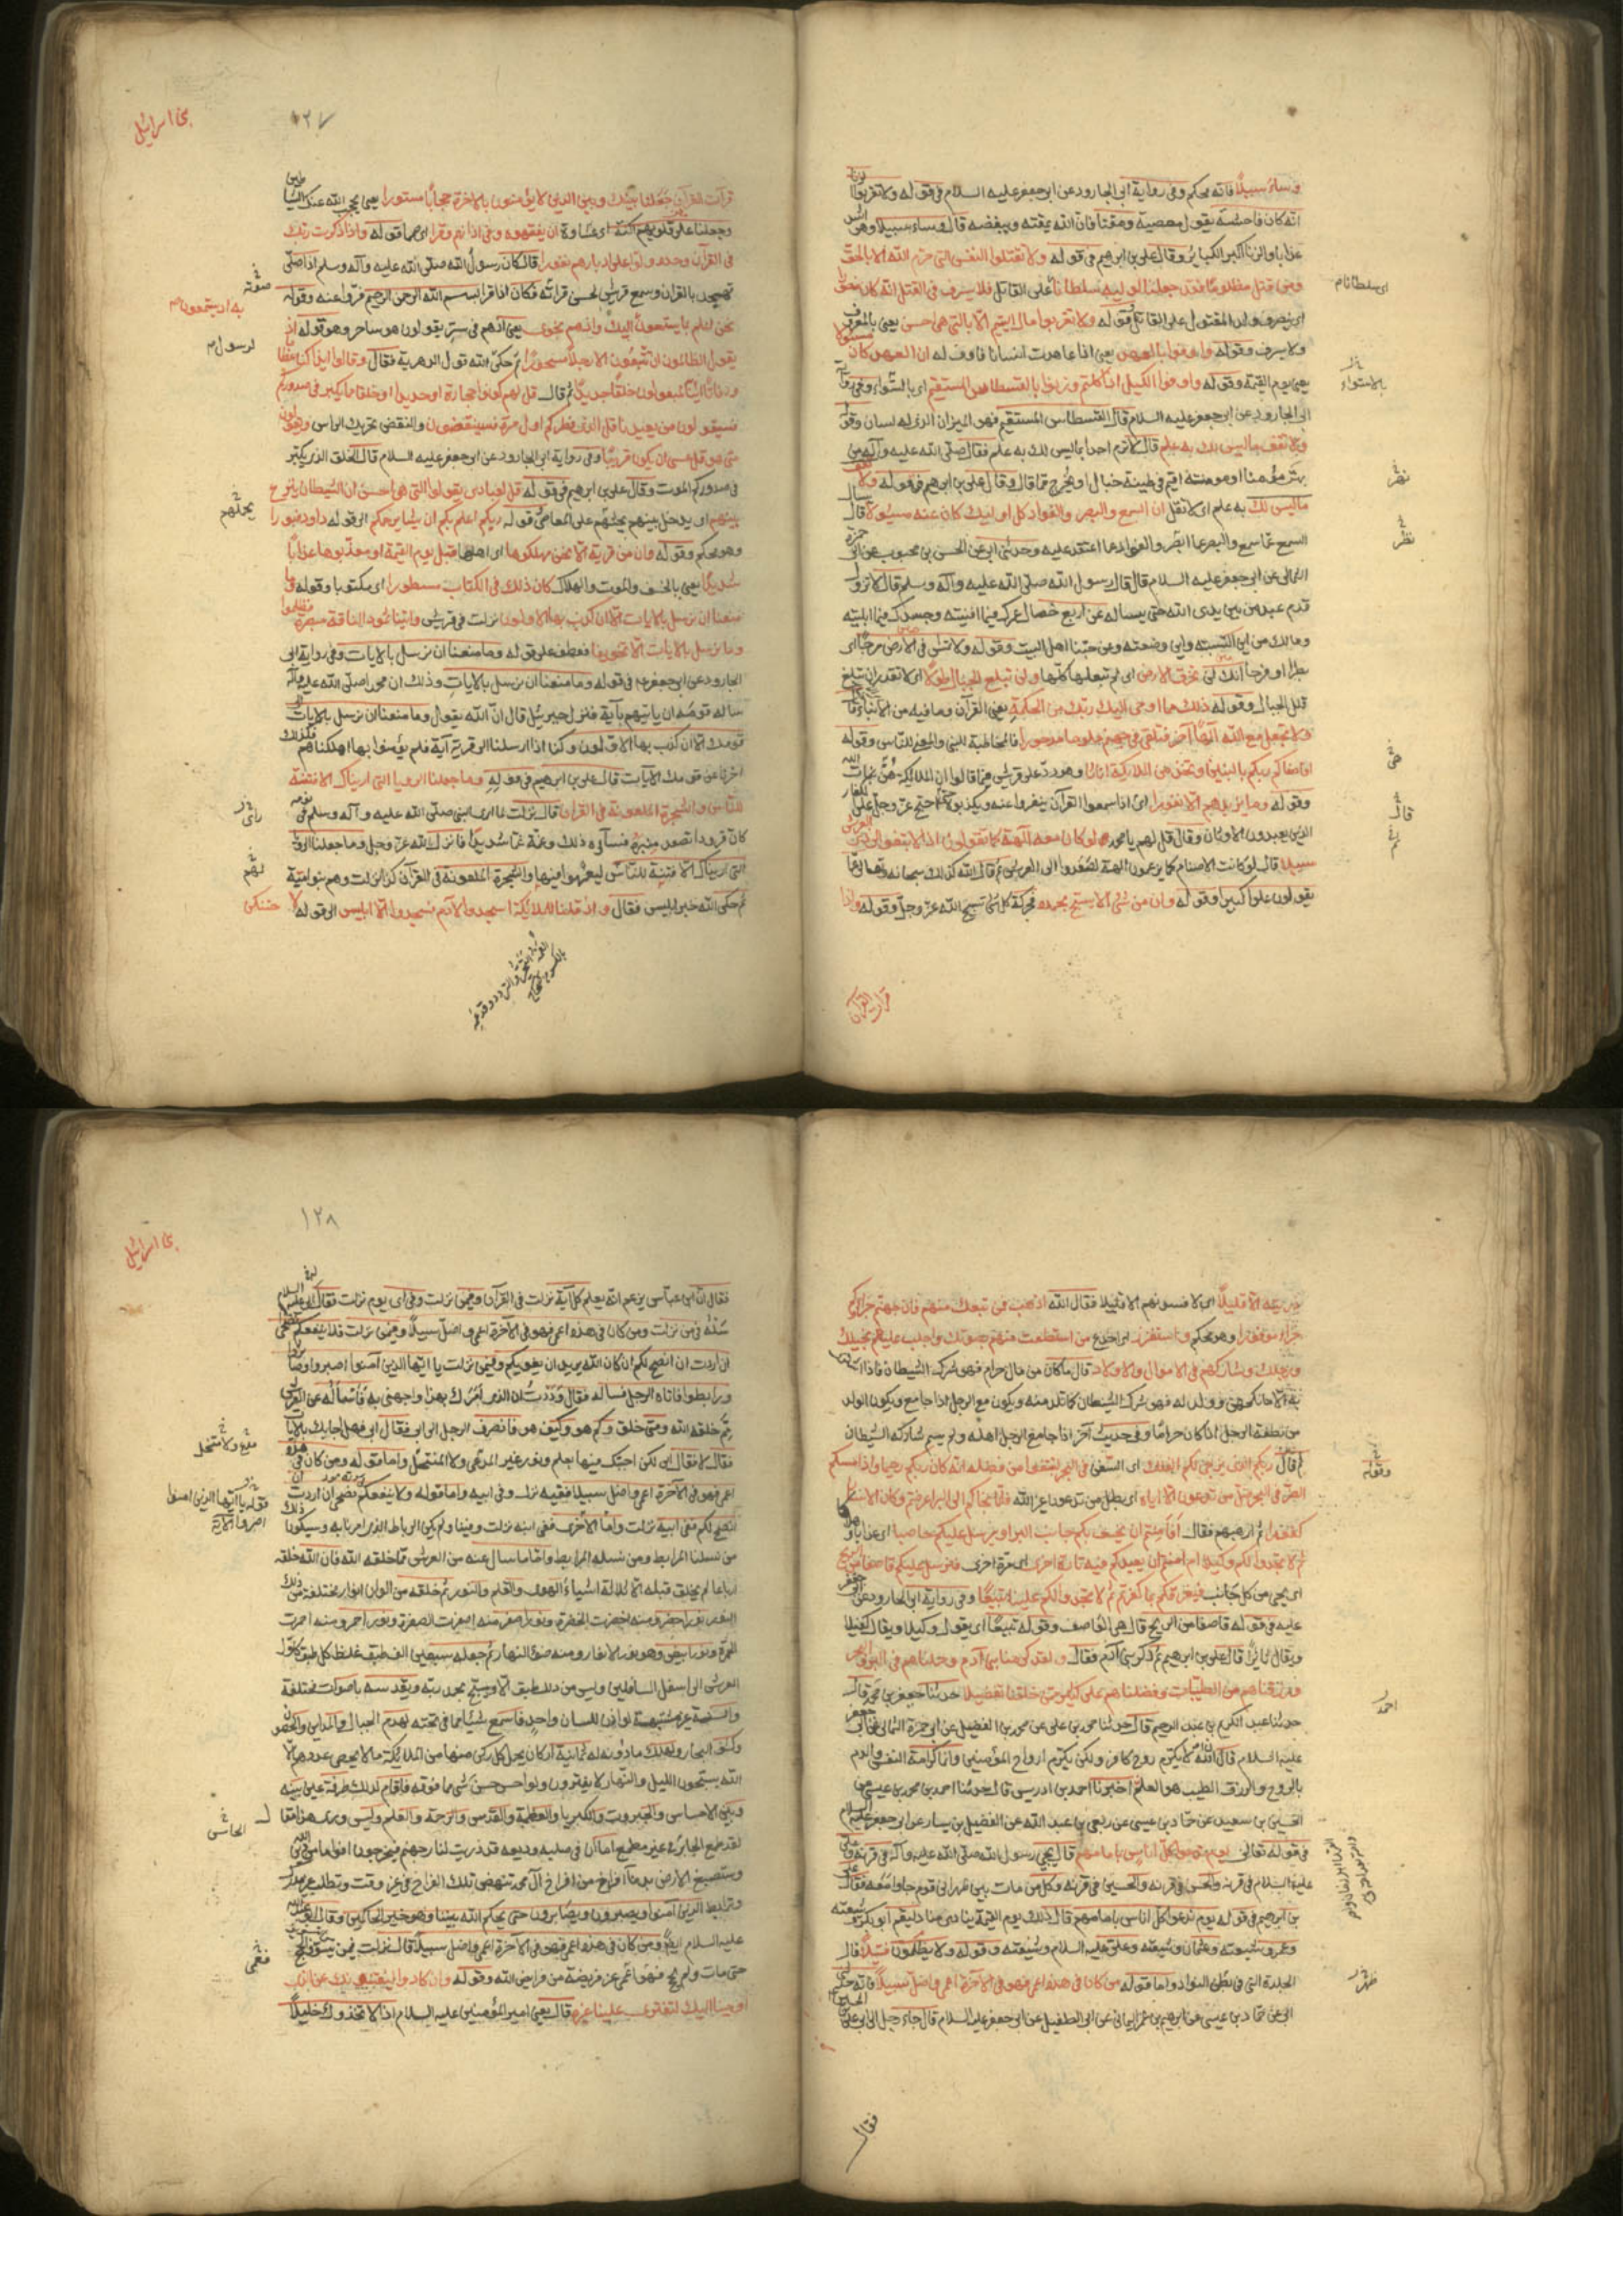 وساء سبيلا فانه محكم وفى رواية ابى الجارود عن ابى جعفر عليه السلام فى قوله ولا تقربوا الزنا
انه كان فاحشة يقول معصية ومقتا فان الله يمقته ويبغضه قال وساء سبيلا وهو اشد
عذابا والزنا اكبر الكبائر وقال على بن ابراهيم فى قوله ولا تقتلوا النفس التى حرم الله الا بالحق
ومن قتل مظلوما فقد جعلنا لوليه سلطانا على القاتل فلا يسرف فى القتل انه كان منصورا
اى ينصر ولد المقتول على القاتل قوله ولا تقربوا مال اليتيم الا بالتى هى احسن يعنى بالمعروف
ولا يسرف وقوله واوفوا بالعهد يعنى اذا عاهدت انسانا فاوف له ان العهد كان مسئولا
يعنى يوم القيمة وقوله واوفوا الكيل اذا كلتم وزنوا بالقسطاس المستقيم اى بالسواء وفى رواية
ابى الجارود عن ابى جعفر عليه السلام قال القسطاس المستقيم فهو الميزان الذى له لسان وقوله
ولا تقف ما ليس لك به علم قال لا ترم احدا بما ليس لك به علم فقال صلى الله عليه وآله من
بهت مؤمنا او مومنة اقيم فى طينة خبال او يخرج مما قال وقال على بن ابراهيم فى قوله ولا تقف
ما ليس لك به علم اى لا تقل ان السمع والبصر والفواد كل اولئك كان عنه مسئولا قال يسال
السمع عما سمع والبصر عما ابصر والفواد عما اعتقد عليه وحدثنى ابى عن الحسن بن محبوب عن ابى حمزة
الثمالى عن ابى جعفر عليه السلام قال قال رسول الله صلى الله عليه وآله وسلم قال لا تزول
قدم عبد من بين يدى الله حتى يساله عن اربع خصال عمرك فيما افنيته وجسدك فيما ابليته
ومالك من اين اكتسبته واين وضعته وعن حبنا اهل البيت وقوله ولا تمش فى الارض مرحا اى
بطرا او فرحا انك لن تخرق الارض اى لم تبلغها كلها ولن تبلغ الجبال طولا اى لا تقدر ان تبلغ
قلل الجبال وقوله ذلك مما اوحى اليك ربك من الحكمة يعنى القرآن وما فيه من الانباء ثم قال
ولا تجعل مع الله آلها آخر فتلقى فى جهنم ملوما مدحورا فالمخاطبة للنبى والمعنى للناس وقوله
افاصفاكم ربكم بالبنين واتخذ من الملائكة اناثا وهو رد على قريش فيما قالوا ان الملائكة هن بنات الله
وقوله وما يزيدهم الا نفورا اى اذا سمعوا القرآن ينفروا عنه ويكذبوه ثم احتج عز وجل على الكفار
الذين يعبدون الاوثان وقال قل لهم يا محمد لو كان معه آلهة كما تقولون اذا لابتغوا الى ذى العرش
سبيلا قال لو كانت الاصنام كما يزعمون آلهة لصعدوا الى العرش ثم قال الله كذلك سبحانه وتعالى عما
يقولون علوا كبيرا وقوله وان من شئ الا يسبح بحمده فحركة كل شئ تسبيح الله عز وجل وقوله واذا
قرات القرآن
بنى اسرائيل
١٢٧
قرأت القرآن جعلنا بينك وبين الذين لا يؤمنون بالاخرة حجابا مستورا يعنى يحجب الله عنك الشياطين
وجعلنا على قلوبهم اكنة اى غشاوة ان يفقهوه وفى اذانهم وقرا اى صمما قوله واذا ذكرت ربك
فى القرآن وحده ولوا على ادبارهم نفورا قال كان رسول الله صلى الله عليه وآله وسلم اذا صلى
تهجد بالقرآن وسمع قريش لحسن قراته فكان اذا قرا بسم الله الرحمن الرحيم فروا عنه وقوله
نحن اعلم بما يستمعون اليك واذهم نجوى يعنى اذ هم فى ستر يقولون هو ساحر وهو قوله اذ
يقول الظالمون ان تتبعون الا رجلا مسحورا ثم حكى الله قول الدهرية فقال وقالوا ائذا كنا عظاما
ورفاتا ائنا لمبعوثون خلقا جديدا ثم قال قل لهم كونوا حجارة او حديدا او خلقا مما يكبر فى صدوركم
فسيقولون من يعيدنا قل الذى فطركم اول مرة فسينغضون والنغض تحريك الراس ويقولون
متى هو قل عسى ان يكون قريبا وفى رواية ابى الجارود عن ابى جعفر عليه السلام قال الخلق الذى يكبر
فى صدوركم الموت وقال على بن ابراهيم فى قوله قل لعبادى يقولوا التى هى احسن ان الشيطان ينزغ
بينهم اى يدخل بينهم يحثهم على المعاصى قوله ربكم اعلم بكم ان يشا يرحمكم الى قوله داود زبورا
وهو محكم وقوله وان من قرية الا نحن مهلكوها اى اهلها قبل يوم القيمة او معذبوها عذابا
شديدا يعنى بالخسف والموت والهلاك كان ذلك فى الكتاب مسطورا اى مكتوبا وقوله وما
منعنا ان نرسل بالايات الا ان كذب بها الاولون نزلت فى قريش واتينا ثمود الناقة مبصرة فظلموا
وما نرسل بالايات الا تخويفا فعطف على قوله وما منعنا ان نرسل بالايات وفى رواية ابى
الجارود عن ابى جعفر فى قوله وما منعنا ان نرسل بالايات وذلك ان محمدا صلى الله عليه وآله
ساله قومه ان ياتيهم بآية فنزل جبرئيل قال ان الله يقول وما منعنا ان نرسل بالايات
قومك الا ان كذب بها الاولون وكنا اذا ارسلنا الى قرية آية فلم يؤمنوا بها اهلكناهم فلذلك
اخرنا عن قومك الآيات قال على بن ابراهيم فى قوله وما جعلنا الرويا التى اريناك الا فتنة
للناس والشجرة الملعونة فى القرآن قال نزلت لما راى النبى صلى الله عليه وآله وسلم فى نومه
كان قرودا تصعد منبره فساءه ذلك وغمه غما شديدا فانزل الله عز وجل وما جعلنا الرؤيا
التى اريناك الا فتنة للناس ليعمهوا فيها والشجرة الملعونة فى القرآن كذا نزلت وهم بنو امية
ثم حكى الله خبر ابليس فقال واذ قلنا للملائكة اسجدوا لآدم فسجدوا الا ابليس الى قوله لا حتنكن
ذريته الا قليلا اى لافسدنهم الا قليلا فقال الله اذهب فمن تبعك منهم فان جهنم جزاؤكم
جزاء موفورا وهو محكم واستفزز اى اخدع من استطعت منهم بصوتك واجلب عليهم بخيلك
ورجلك وشاركهم فى الاموال والاولاد قال ما كان من مال حرام فهو شرك الشيطان فاذا اشترى
من نطفة الرجل اذا كان حراما وفى حديث آخر اذا جامع الرجل اهله ولم يسم شاركه الشيطان
ثم قال ربكم الذى يزجى لكم الفلك اى السفن فى البحر لتبتغوا من فضله انه كان ربكم رحيما واذا مسكم
الضر فى البحر ضل من تدعون الا اياه اى بطل من تدعون غير الله فلما نجاكم الى البر اعرضتم وكان الانسان
كفورا ثم ارهبهم فقال افامنتم ان يخسف بكم جانب البر او يرسل عليكم حاصبا اى عذابا وهلاكا
ثم لا تجدوا لكم وكيلا ام امنتم ان يعيدكم فيه تارة اخرى اى مرة اخرى فيرسل عليكم قاصفا من الريح
اى يجئ من كل جانب فيغرقكم بما كفرتم ثم لا تجدوا لكم علينا به تبيعا وفى رواية ابى الجارود عن ابى جعفر
عليه فى قوله قاصفا من الريح قال هى العاصف وقوله تبيعا اى يقول وكيلا ويقال كفيلا
ويقال ثائرا قال على بن ابراهيم ثم ذكر بنى آدم فقال ولقد كرمنا بنى آدم وحملناهم فى البر والبحر
ورزقناهم من الطيبات وفضلناهم على كثير ممن خلقنا تفضيلا حدثنا جعفر بن محمد قال
حدثنا عبد الكريم بن عبد الرحيم قال حدثنا محمد بن على عن محمد بن الفضيل عن ابى حمزة الثمالى عن ابى جعفر
عليه السلام قال ان الله لا يكرم روح كافر ولكن يكرم ارواح المؤمنين وانما كرامة النفس والدم
بالروح والرزق الطيب هو العلم اخبرنا احمد بن ادريس قال حدثنا احمد بن محمد بن عيسى عن
الحسين بن سعيد عن حماد بن عيسى عن ربعى بن عبد الله عن الفضيل بن يسار عن ابى جعفر عليه السلام
فى قوله تعالى يوم ندعوا كل اناس بامامهم قال يجئ رسول الله صلى الله عليه وآله فى قرنه وعلى
عليه السلام فى قرنه والحسن فى قرنه والحسين فى قرنه وكل من مات بين ظهرانى قوم جاوا معه فقال على
بن ابراهيم فى قوله يوم ندعوا كل اناس بامامهم قال ذلك يوم القيمة ينادى مناد ليقم ابو بكر وشيعته
وعمر وشيعته وعثمان وشيعته وعلى عليه السلام وشيعته وقوله ولا يظلمون فتيلا قال
الجلدة التى فى بطن النواة واما قوله من كان فى هذه اعمى فهو فى الآخرة اعمى واضل سبيلا فانه حدثنى
ابى عن حماد بن عيسى عن ابراهيم بن عمر اليمانى عن ابى الطفيل عن ابى جعفر عليه السلام قال جاء رجل الى ابى على بن الحسين
فقال
بنى اسرائيل
١٢٨
فقال ان ابن عباس يزعم انه يعلم كل آية نزلت فى القرآن وفيمن نزلت وفى اى يوم نزلت فقال ابى عليه السلام
سله فيمن نزلت ومن كان فى هذه اعمى فهو فى الآخرة اعمى واضل سبيلا وفيمن نزلت فلا ينفعكم نصحى
ان اردت ان انصح لكم ان كان الله يريد ان يغويكم وفيمن نزلت يا ايها الذين آمنوا اصبروا وصابروا
ورابطوا فاتاه الرجل فساله فقال وددت ان الذى امرك بهذا واجهنى به فأسأله عن العرش
مم خلقه الله ومتى خلق وكم هو وكيف هو فانصرف الرجل الى ابى فقال ابى فهل اجابك بالآيات
فقال لا فقال ابى لكن اجبتك فيها بعلم ونور غير المدعى ولا المنتحل واما قوله ومن كان فى هذه
اعمى فهو فى الآخرة اعمى واضل سبيلا ففيه نزلت وفى ابيه واما قوله ولا ينفعكم نصحى ان اردت ان
انصح لكم ففى ابيه نزلت واما الأخرى ففى ابنه نزلت وفينا ولم يكن الرباط الذى امرنا به وسيكون ذلك
من نسلنا المرابط ومن نسله المرابط واما ما سال عنه من العرش مما خلقه الله فان الله خلقه
ارباعا لم يخلق قبله الا ثلاثة اشياء الهواء والقلم والنور ثم خلقه من الوان انوار مختلفة من ذلك
النور نور اخضر ومنه اخضرت الخضرة ونور اصفر منه اصفرت الصفرة ونور احمر ومنه احمرت
الحمرة ونور ابيض وهو نور الانوار ومنه ضوء النهار ثم جعله سبعين الف طبق غلظ كل طبق كاول
العرش الى اسفل السافلين وليس من ذلك طبق الا ويسبح بحمد ربه ويقدسه باصوات مختلفة
والسنة غير مشتبهة لو اذن للسان واحد فاسمع شيئا مما تحته لهدم الجبال والمداين والحصون
وكشف البحار ولهلك ما دونه له ثمانية اركان يحمل كل ركن منها من الملائكة ما لا يحصى عددهم الا
الله يسبحون الليل والنهار لا يفترون ولو احس حس شئ مما فوقه ما قام لذلك طرفة عين بينه
وبين الاحساس والجبروت والكبرياء والعظمة والقدس والرحمة والعلم وليس وراء هذا مقال
لقد طمع الحائر فى غير مطمع اما ان فى صلبه وديعة قد ذريت لنار جهنم فيخرجون اقواما من دين الله
وستصبغ الارض بدماء افراخ من افراخ آل محمد تنهض تلك الفراخ فى غير وقت وتطلب غير مدرك
ويرابط الذين آمنوا ويصبرون ويصابرون حتى يحكم الله بيننا وهو خير الحاكمين وقال ابو عبد الله
عليه السلام ايضا ومن كان فى هذه اعمى فهو فى الآخرة اعمى واضل سبيلا قال نزلت فيمن يسوف الحج
حتى مات ولم يحج فهو اعمى عن فريضة من فرايض الله وقوله وان كادوا ليفتنونك عن الذى
اوحينا اليك لتفترى علينا غيره قال يعنى امير المؤمنين عليه السلام اذا لاتخذوك خليلا